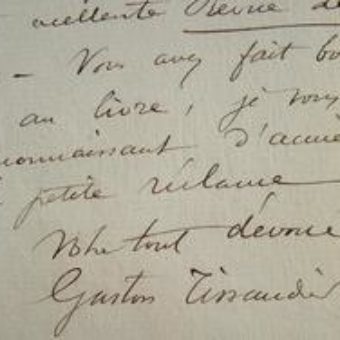 excellente Revue de
- Vous avez fait bo
au livre, je vous
connaissant d'acu
petite réclame
Votre tout dévoué
Gaston Tissandier